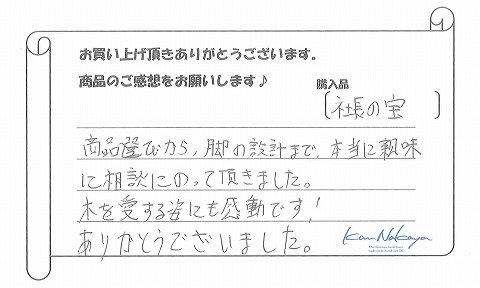 お買い上げ頂きありがとうございます。
商品のご感想をお願いします♪
購入品
〔社長の宝〕
商品選びから，脚の設計まで，本当に親味
に相談にのって頂きました。
木を愛する姿にも感動です！
ありがとうございました。
KanNakaya